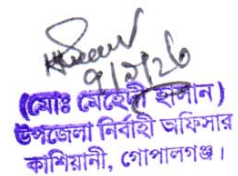 ৯/২/২৬
(মোঃ মেহেদী হাসান)
উপজেলা নির্বাহী অফিসার
কাশিয়ানী, গোপালগঞ্জ।